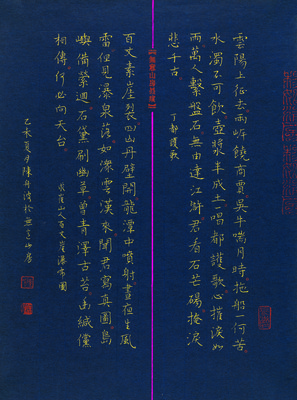 雲陽上征去兩岸饒商賈吳牛喘月時拖船一何苦
水濁不可飲壺漿半成土一唱都護歌心摧淚如
雨萬人繫盤石無由達江滸君看石芒碭掩淚
悲千古 丁都護歌
百丈素崖裂四山丹壁開龍潭中噴射晝夜生風
雷但見瀑泉落如潨雲漢來聞君寫真圖島
嶼備縈迴石黛刷幽草曾青澤古苔幽緘儻
相傳何必向天台 求崔山人百丈崖瀑布圖